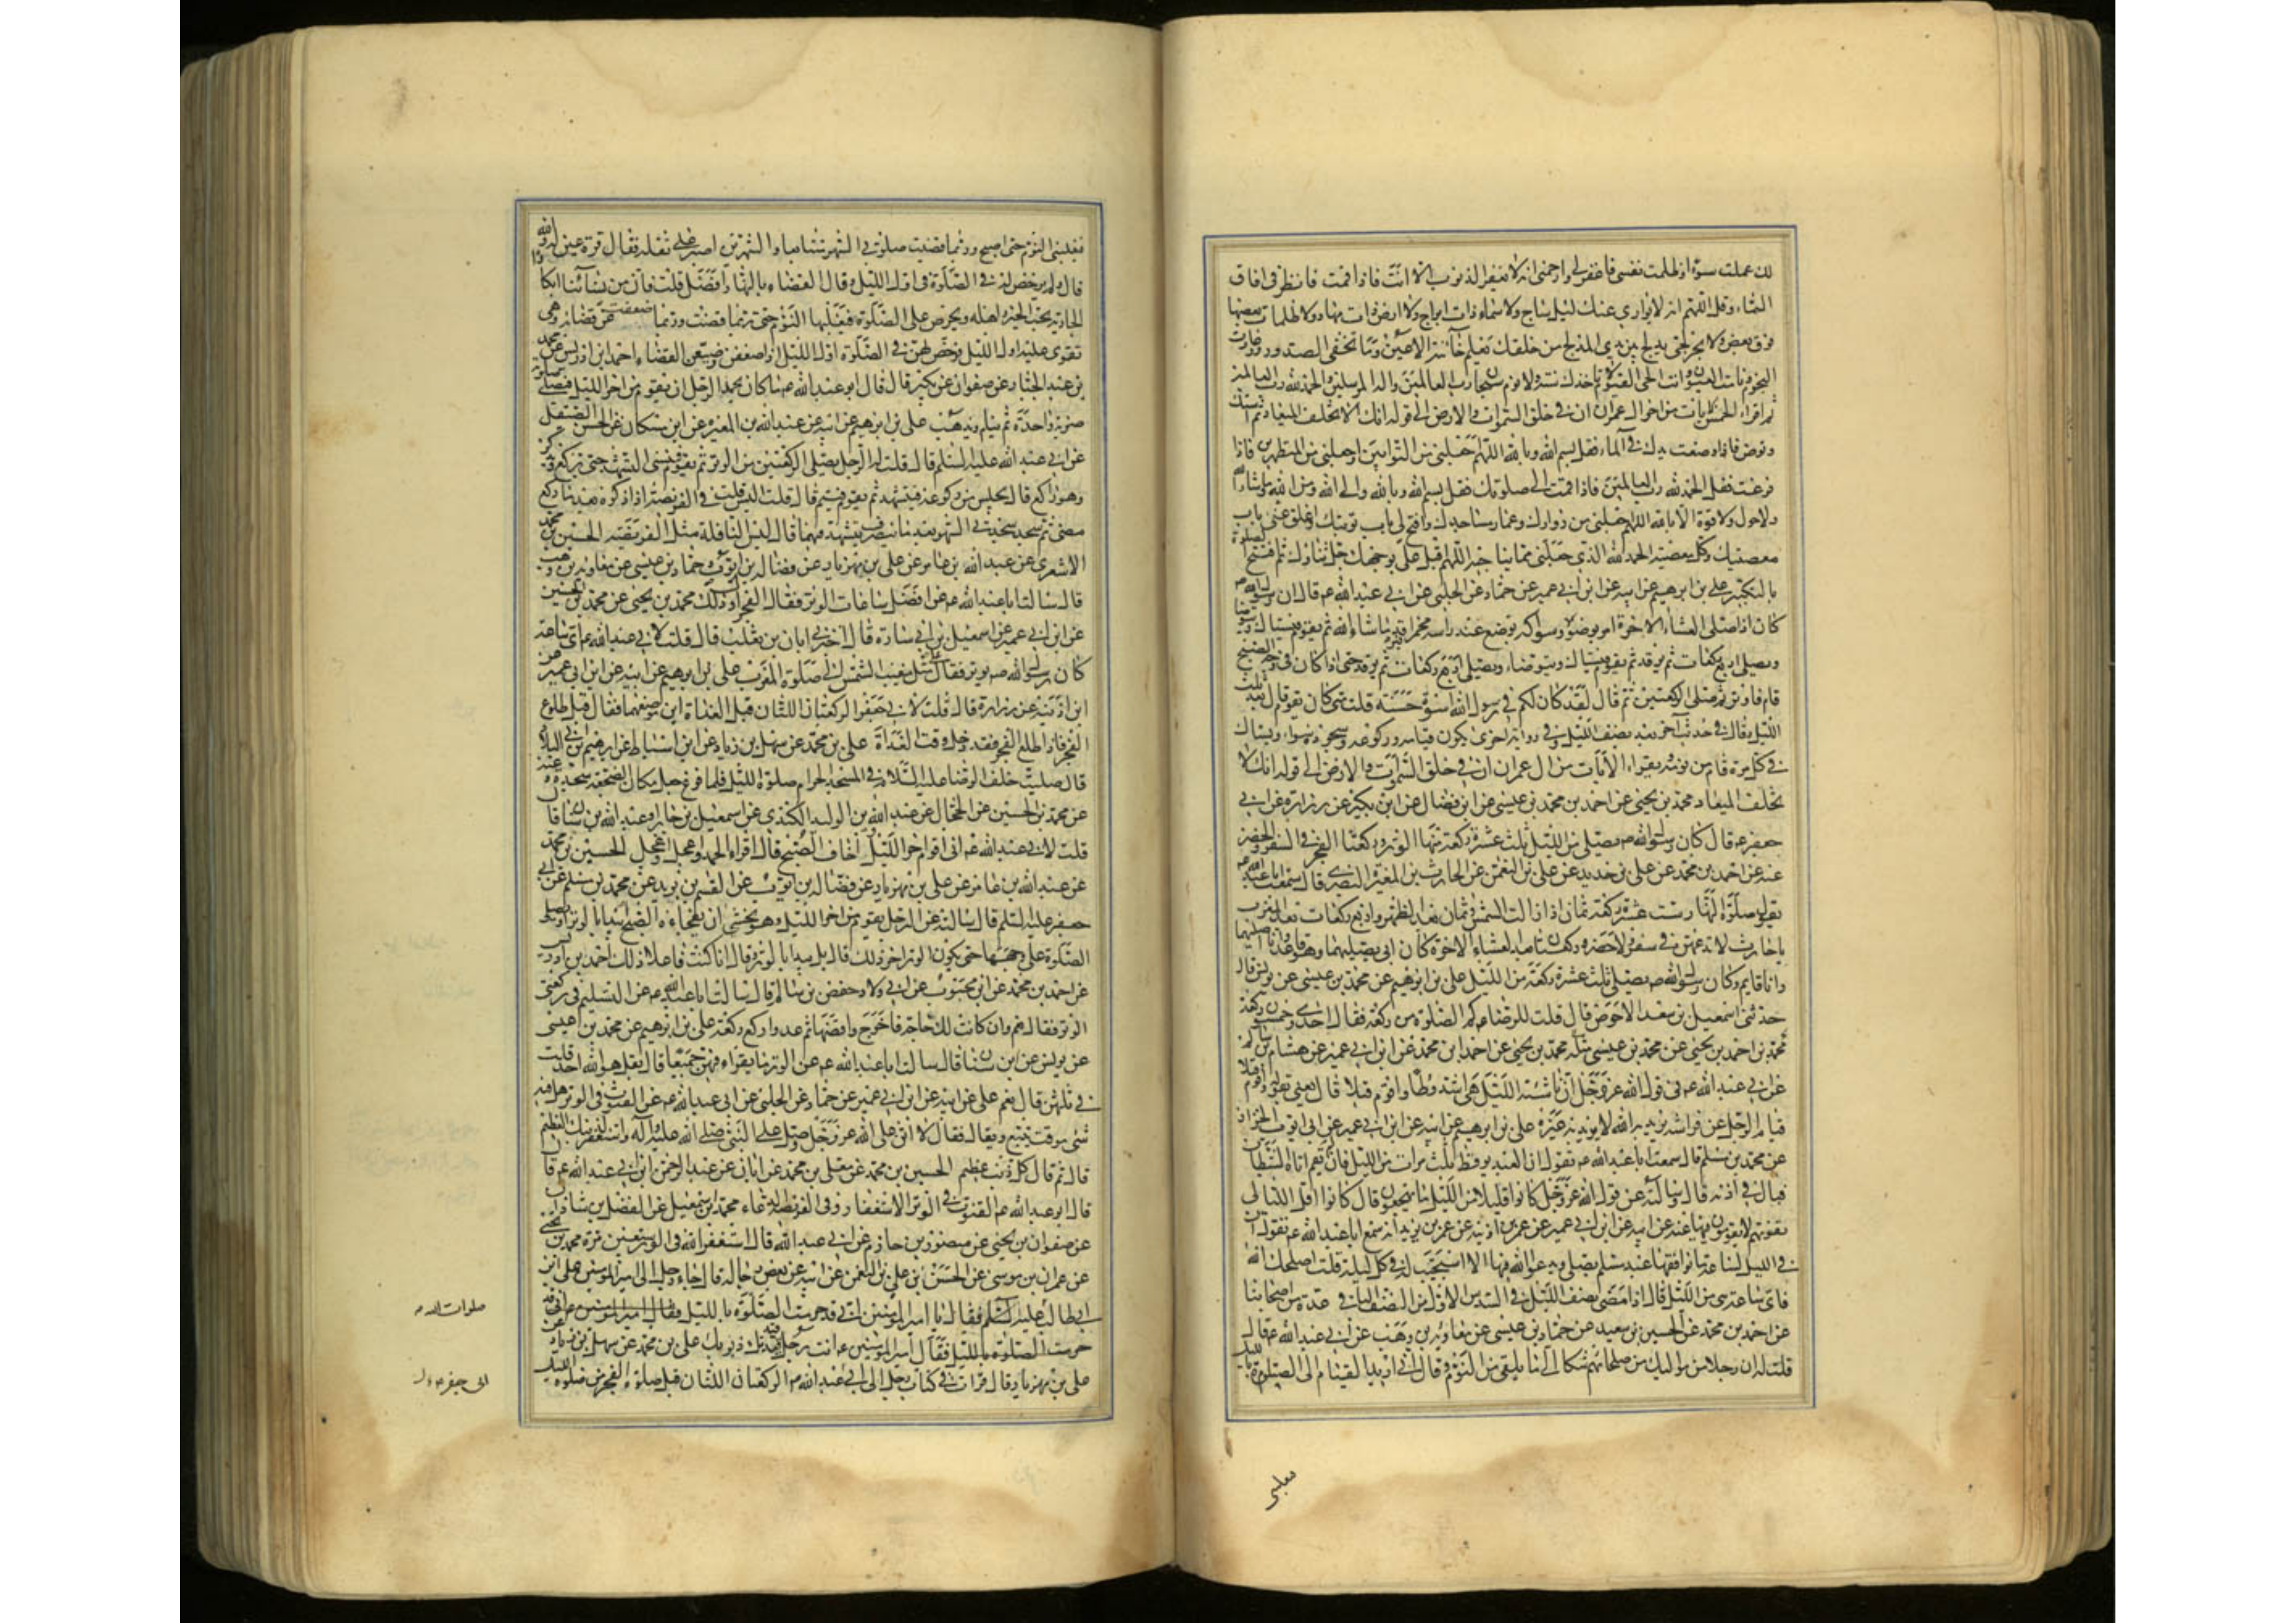 لك عملت سوءا وظلمت نفسي فاغفر لي وارحمني انه لا يغفر الذنوب الا انت فاذا قمت فانظر في افاق
السماء وقل اللهم انه لا يواري عنك ليل ساج ولا سماء ذات ابراج ولا ارض ذات مهاد ولا ظلمات بعضها
فوق بعض ولا بحر لجي يدلج بين يدي المدلج من خلقك تعلم خائنة الاعين وما تخفي الصدور وغارت
النجوم ونامت العيون وانت الحي القيوم لا تاخذك سنة ولا نوم سبحان رب العالمين واله المرسلين والحمد لله رب العالمين
ثم اقراء الخمس ايات من اخر ال عمران ان في خلق السموات والارض الى قوله انك لا تخلف الميعاد ثم استك
وتوض فاذا وضعت يدك في الماء فقل بسم الله وبالله اللهم اجعلني من التوابين واجعلني من المتطهرين فاذا
فرغت فقل الحمد لله رب العالمين فاذا قمت الى صلوتك فقل بسم الله وبالله والى الله ومن الله وما شاء الله
ولا حول ولا قوة الا بالله اللهم اجعلني من زوارك وعمار مساجدك وافتح لي باب توبتك واغلق عني باب
معصيتك وكل معصية الحمد لله الذي جعلني ممن يناجيه اللهم اقبل علي بوجهك جل ثناؤك ثم افتتح الصلوة
بالتكبير علي بن ابرهيم عن ابيه عن ابن ابي عمير عن حماد عن الحلبي عن ابي عبد الله ع قال ان رسول الله ص
كان اذا صلى العشاء الاخرة امر بوضوئه وسواكه يوضع عند راسه مخمرا فيرقد ما شاء الله ثم يقوم فيستاك ويتوضا
ويصلي اربع ركعات ثم يرقد ثم يقوم فيستاك ويتوضاء ويصلي اربع ركعات ثم يرقد حتى اذا كان في وجه الصبح
قام فاوتر ثم صلى الركعتين ثم قال لقد كان لكم في رسول الله اسوة حسنة قلت متى كان يقوم قال بعد ثلث
الليل وقال في حديث اخر بعد نصف الليل وفي رواية اخرى يكون قيامه وركوعه وسجوده سواء ويستاك
في كل مرة قام من نومه ويقراء الايات من ال عمران ان في خلق السموات والارض الى قوله انك لا
تخلف الميعاد محمد بن يحيى عن احمد بن محمد بن عيسى عن ابن فضال عن ابن بكير عن زرارة عن ابي
جعفر ع قال كان رسول الله ص يصلي من الليل ثلث عشرة ركعة منها الوتر وركعتا الفجر في السفر والحضر
عنه عن احمد بن محمد عن علي بن حديد عن علي بن النعمن عن الحارث بن المغيرة النصري قال سمعت ابا عبد الله ع
يقول صلوة النهار ست عشرة ركعة ثمان اذا زالت الشمس وثمان بعد الظهر واربع ركعات بعد المغرب
يا حارث لا تدعهن في سفر ولا حضر وركعتان بعد العشاء الاخرة كان ابي يصليهما وهو قاعد وانا اصليهما
وانا قايم وكان رسول الله ص يصلي ثلث عشرة ركعة من الليل علي بن ابرهيم عن محمد بن عيسى عن يونس قال
حدثني اسمعيل بن سعد الاحوص قال قلت للرضا ع كم الصلوة من ركعة فقال احدى وخمسون ركعة
محمد بن احمد بن يحيى عن محمد بن عيسى مثله محمد بن يحيى عن احمد ابن محمد عن ابن ابي عمير عن هشام بن سالم
عن ابي عبد الله ع في قول الله عز وجل ان ناشئة الليل هي اشد وطا واقوم قيلا قال يعني بقوله واقوم قيلا
قيام الرجل عن فراشه يريد به الله لا يريد به غيره علي بن ابرهيم عن ابيه عن ابن ابي عمير عن ابي ايوب الخزاز
عن محمد بن مسلم قال سمعت ابا عبد الله ع يقول ان العبد يوقظ ثلث مرات من الليل فان لم يقم اتاه الشيطان
فبال في اذنه قال وسالته عن قول الله عز وجل كانوا قليلا من الليل ما يهجعون قال كانوا اقل الليالي
تفوتهم لا يقومون فيها عنه عن ابيه عن ابن ابي عمير عن عمر بن اذينة عن عمر بن يزيد انه سمع ابا عبد الله ع يقول ان
في الليل لساعة ما يوافقها عبد مسلم يصلي ويدعو الله فيها الا استجيب له في كل ليلة قلت اصلحك الله
فاي ساعة هي من الليل قال اذا مضى نصف الليل في السدس الاول من النصف الباقي عدة من اصحابنا
عن احمد بن محمد عن الحسين بن سعيد عن حماد بن عيسى عن معاوية بن وهب عن ابي عبد الله ع قال
قلت له ان رجلا من مواليك من صلحائهم شكا الي ما يلقى من النوم وقال اني اريد القيام الى الصلوة بالليل
فغلبني
فيغلبني النوم حتى اصبح وربما قضيت صلوتي الشهر متتابعا والشهرين اصبر على ثقله فقال قرة عين له والله
قال ولم يرخص له في الصلوة في اول الليل وقال القضاء بالنهار افضل قلت فان من نسائنا ابكارا
الجارية تحب الخير واهله وتحرص على الصلوة فيغلبها النوم حتى ربما قضت وربما ضعفت عن قضائه وهي
تقوى عليه اول الليل فرخص لهن في الصلوة اول الليل اذا ضعفن وضيعن القضاء احمد ابن ادريس عن محمد
بن عبد الجبار عن صفوان عن بكير قال قال ابو عبد الله ع ما كان يحمد الرجل ان يقوم من اخر الليل فيصلي صلوته
ضربة واحدة ثم ينام ويذهب علي بن ابرهيم عن ابيه عن عبد الله بن المغيرة عن ابن مسكان عن الحسن الصيقل
عن ابي عبد الله عليه السلم قال قلت له الرجل يصلي الركعتين من الوتر ثم يقوم فينسى التشهد حتى يركع فيذكر
وهو راكع قال يجلس من ركوعه فيتشهد ثم يقوم فيتم قال قلت اليس قلت في الفريضة اذا ذكره بعد ما ركع
مضى ثم سجد سجدتي السهو بعد ما ينصرف يتشهد فيهما قال ليس النافلة مثل الفريضة الحسين بن محمد
الاشعري عن عبد الله بن عامر عن علي بن مهزيار عن فضالة بن ايوب وحماد بن عيسى عن معاوية بن وهب
قال سالت ابا عبد الله ع عن افضل ساعات الوتر فقال الفجر اول ذلك محمد بن يحيى عن محمد بن الحسين
عن ابن ابي عمير عن اسمعيل بن ابي سارة قال اخبرني ابان بن تغلب قال قلت لابي عبد الله ع اي ساعة
كان رسول الله ص يوتر فقال على مثل مغيب الشمس الى صلوة المغرب علي بن ابرهيم عن ابيه عن ابن ابي عمير عن
ابن اذينة عن زرارة قال قلت لابي جعفر الركعتان اللتان قبل الغداة اين موضعهما فقال قبل طلوع
الفجر فاذا طلع الفجر فقد دخل وقت الغداة علي بن محمد عن سهل بن زياد عن ابن اسباط عن ابرهيم بن ابي البلاد
قال صليت خلف الرضا عليه السلام في المسجد الحرام صلوة الليل فلما فرغ جعل مكان الضجعة سجدة عنه
عن محمد بن الحسين عن الحجال عن عبد الله بن الوليد الكندي عن اسمعيل بن جابر او عبد الله بن سنان قال
قلت لابي عبد الله ع اني اقوم اخر الليل واخاف الصبح قال اقراء الحمد واعجل واعجل الحسين بن محمد
عن عبد الله بن عامر عن علي بن مهزيار عن فضالة بن ايوب عن القسم بن بريد عن محمد بن مسلم عن ابي
جعفر عليه السلم قال سالته عن الرجل يقوم من اخر الليل وهو يخشى ان يفجاءه الصبح ايبدا بالوتر او يصلي
الصلوة على وجهها حتى يكون الوتر اخر ذلك قال بل يبدا بالوتر وقال انا كنت فاعلا ذلك احمد بن ادريس
عن احمد بن محمد عن ابن محبوب عن ابي ولاد حفص بن سالم قال سالت ابا عبد الله ع عن التسليم في ركعتي
الوتر فقال نعم وان كانت لك حاجة فاخرج واقضها ثم عد واركع ركعة علي بن ابرهيم عن محمد بن عيسى
عن يونس عن ابن سنان قال سالت ابا عبد الله ع عن الوتر ما يقراء فيهن جميعا قال بقل هو الله احد قلت
في ثلثهن قال نعم علي عن ابيه عن ابن ابي عمير عن حماد عن الحلبي عن ابي عبد الله ع عن القنوت في الوتر هل فيه
شئ موقت يتبع ويقال فقال لا اثن على الله عز وجل وصل على النبي صلى الله عليه واله واستغفر لذنبك العظيم
قال ثم قال كل ذنب عظيم الحسين بن محمد عن معلى بن محمد عن ابان عن عبد الرحمن ابن ابي عبد الله ع قال
قال ابو عبد الله ع القنوت في الوتر الاستغفار وفي الفريضة الدعاء محمد بن اسمعيل عن الفضل بن شاذان
عن صفوان بن يحيى عن منصور بن حازم عن ابي عبد الله قال استغفر الله في الوتر سبعين مرة محمد بن يحيى
عن عمران بن موسى عن الحسن بن علي بن النعمن عن ابيه عن بعض رجاله قال جاء رجل الى امير المومنين علي ابن
ابي طالب عليه السلم فقال يا امير المومنين اني قد حرمت الصلوة بالليل فقال امير المومنين ع اني قد
حرمت الصلوة بالليل فقال امير المومنين ع انت رجل قد قيدتك ذنوبك علي بن محمد عن سهل بن زياد عن
علي بن مهزيار قال قرات في كتاب رجل الى ابي عبد الله ع الركعتان اللتان قبل صلوة الفجر من صلوة الليل
صلوات الله
ابي جعفر ع